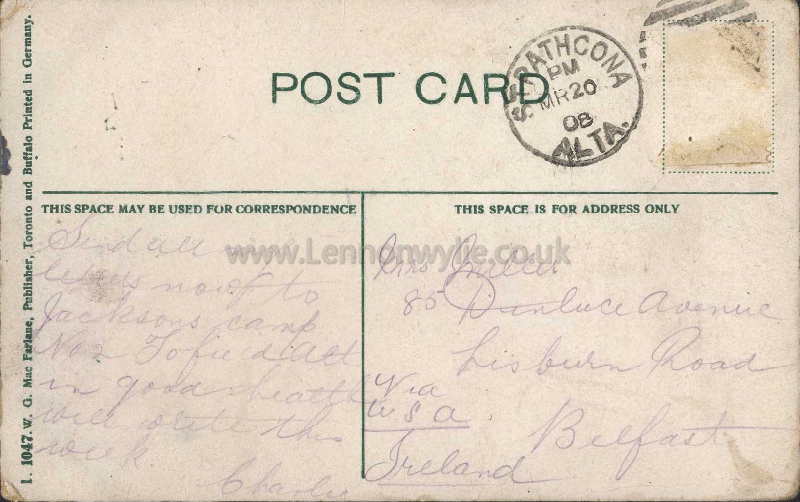 POST CARD
STRATHCONA
PM
MR 20
08
ALTA.
THIS SPACE MAY BE USED FOR CORRESPONDENCE
THIS SPACE IS FOR ADDRESS ONLY
www.Lennonwylie.co.uk
Send all
letters now to
Jacksons camp
No 2 Tofield
in good health
will write this
week
Charlie
Mrs Miller
85 Dunluce Avenue
Lisburn Road
Via
U S A
Belfast
Ireland
I. 1047. W. G. Mac Farlane, Publisher, Toronto and Buffalo Printed in Germany.